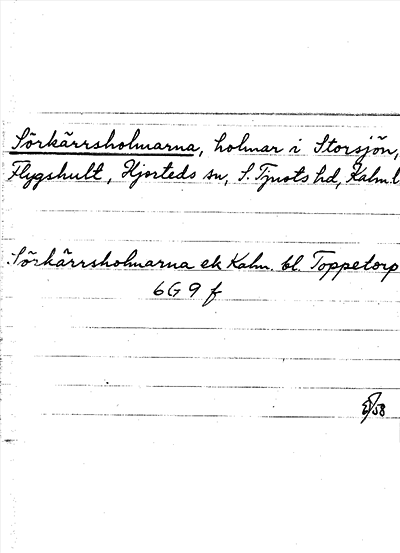 Sörkärrsholmarna, holmar i Storsjön,
Flygshult, Hjorteds sn, S. Tjusts hd, Kalm. l
Sörkärrsholmarna ek Kalm. bl. Toppetorp
6G 9 f
/58